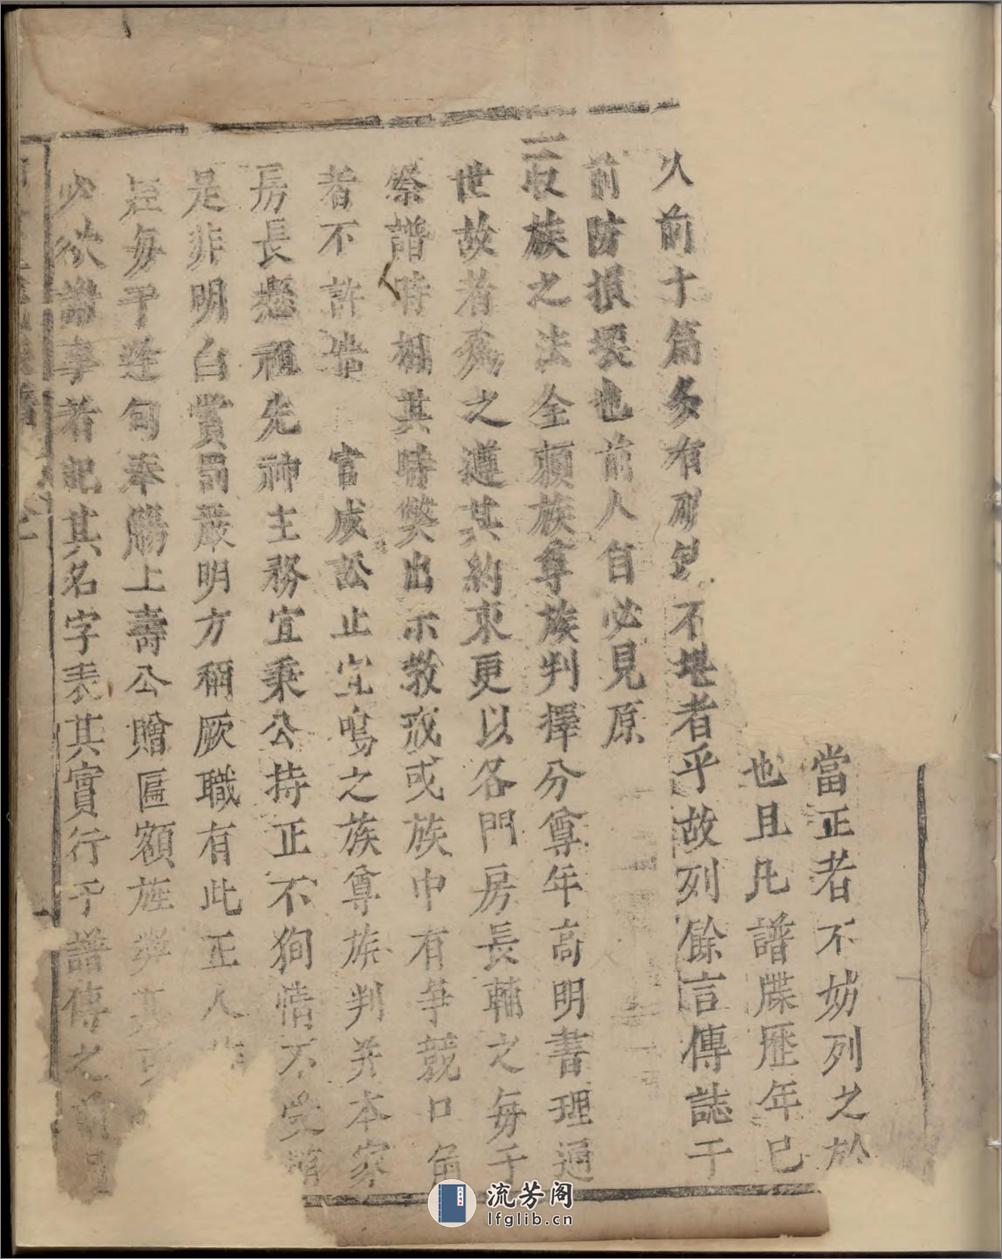 當正者不妨列之於
也且凡譜牒歷年已
久前十篇多有不堪者乎故列餘言傳誌于
前防損壞也前人自必見原
一收族之法全賴族尊族判擇分尊年高明書理通
世故者為之遵其約束更以各門房長輔之每于
祭譜時相其時獘出示教戒或族中有爭競口角
者不許
官威訟止宜鳴之族尊族判并本家
房長懸祖先神主務宜秉公持正不狥情不受
是非明白賞罰嚴明方稱厥職有此正人
每于逢旬奉觴上壽公贈匾額族
少欲 事者記其名字表其實行于譜傳之
流芳阁
lfglib.cn